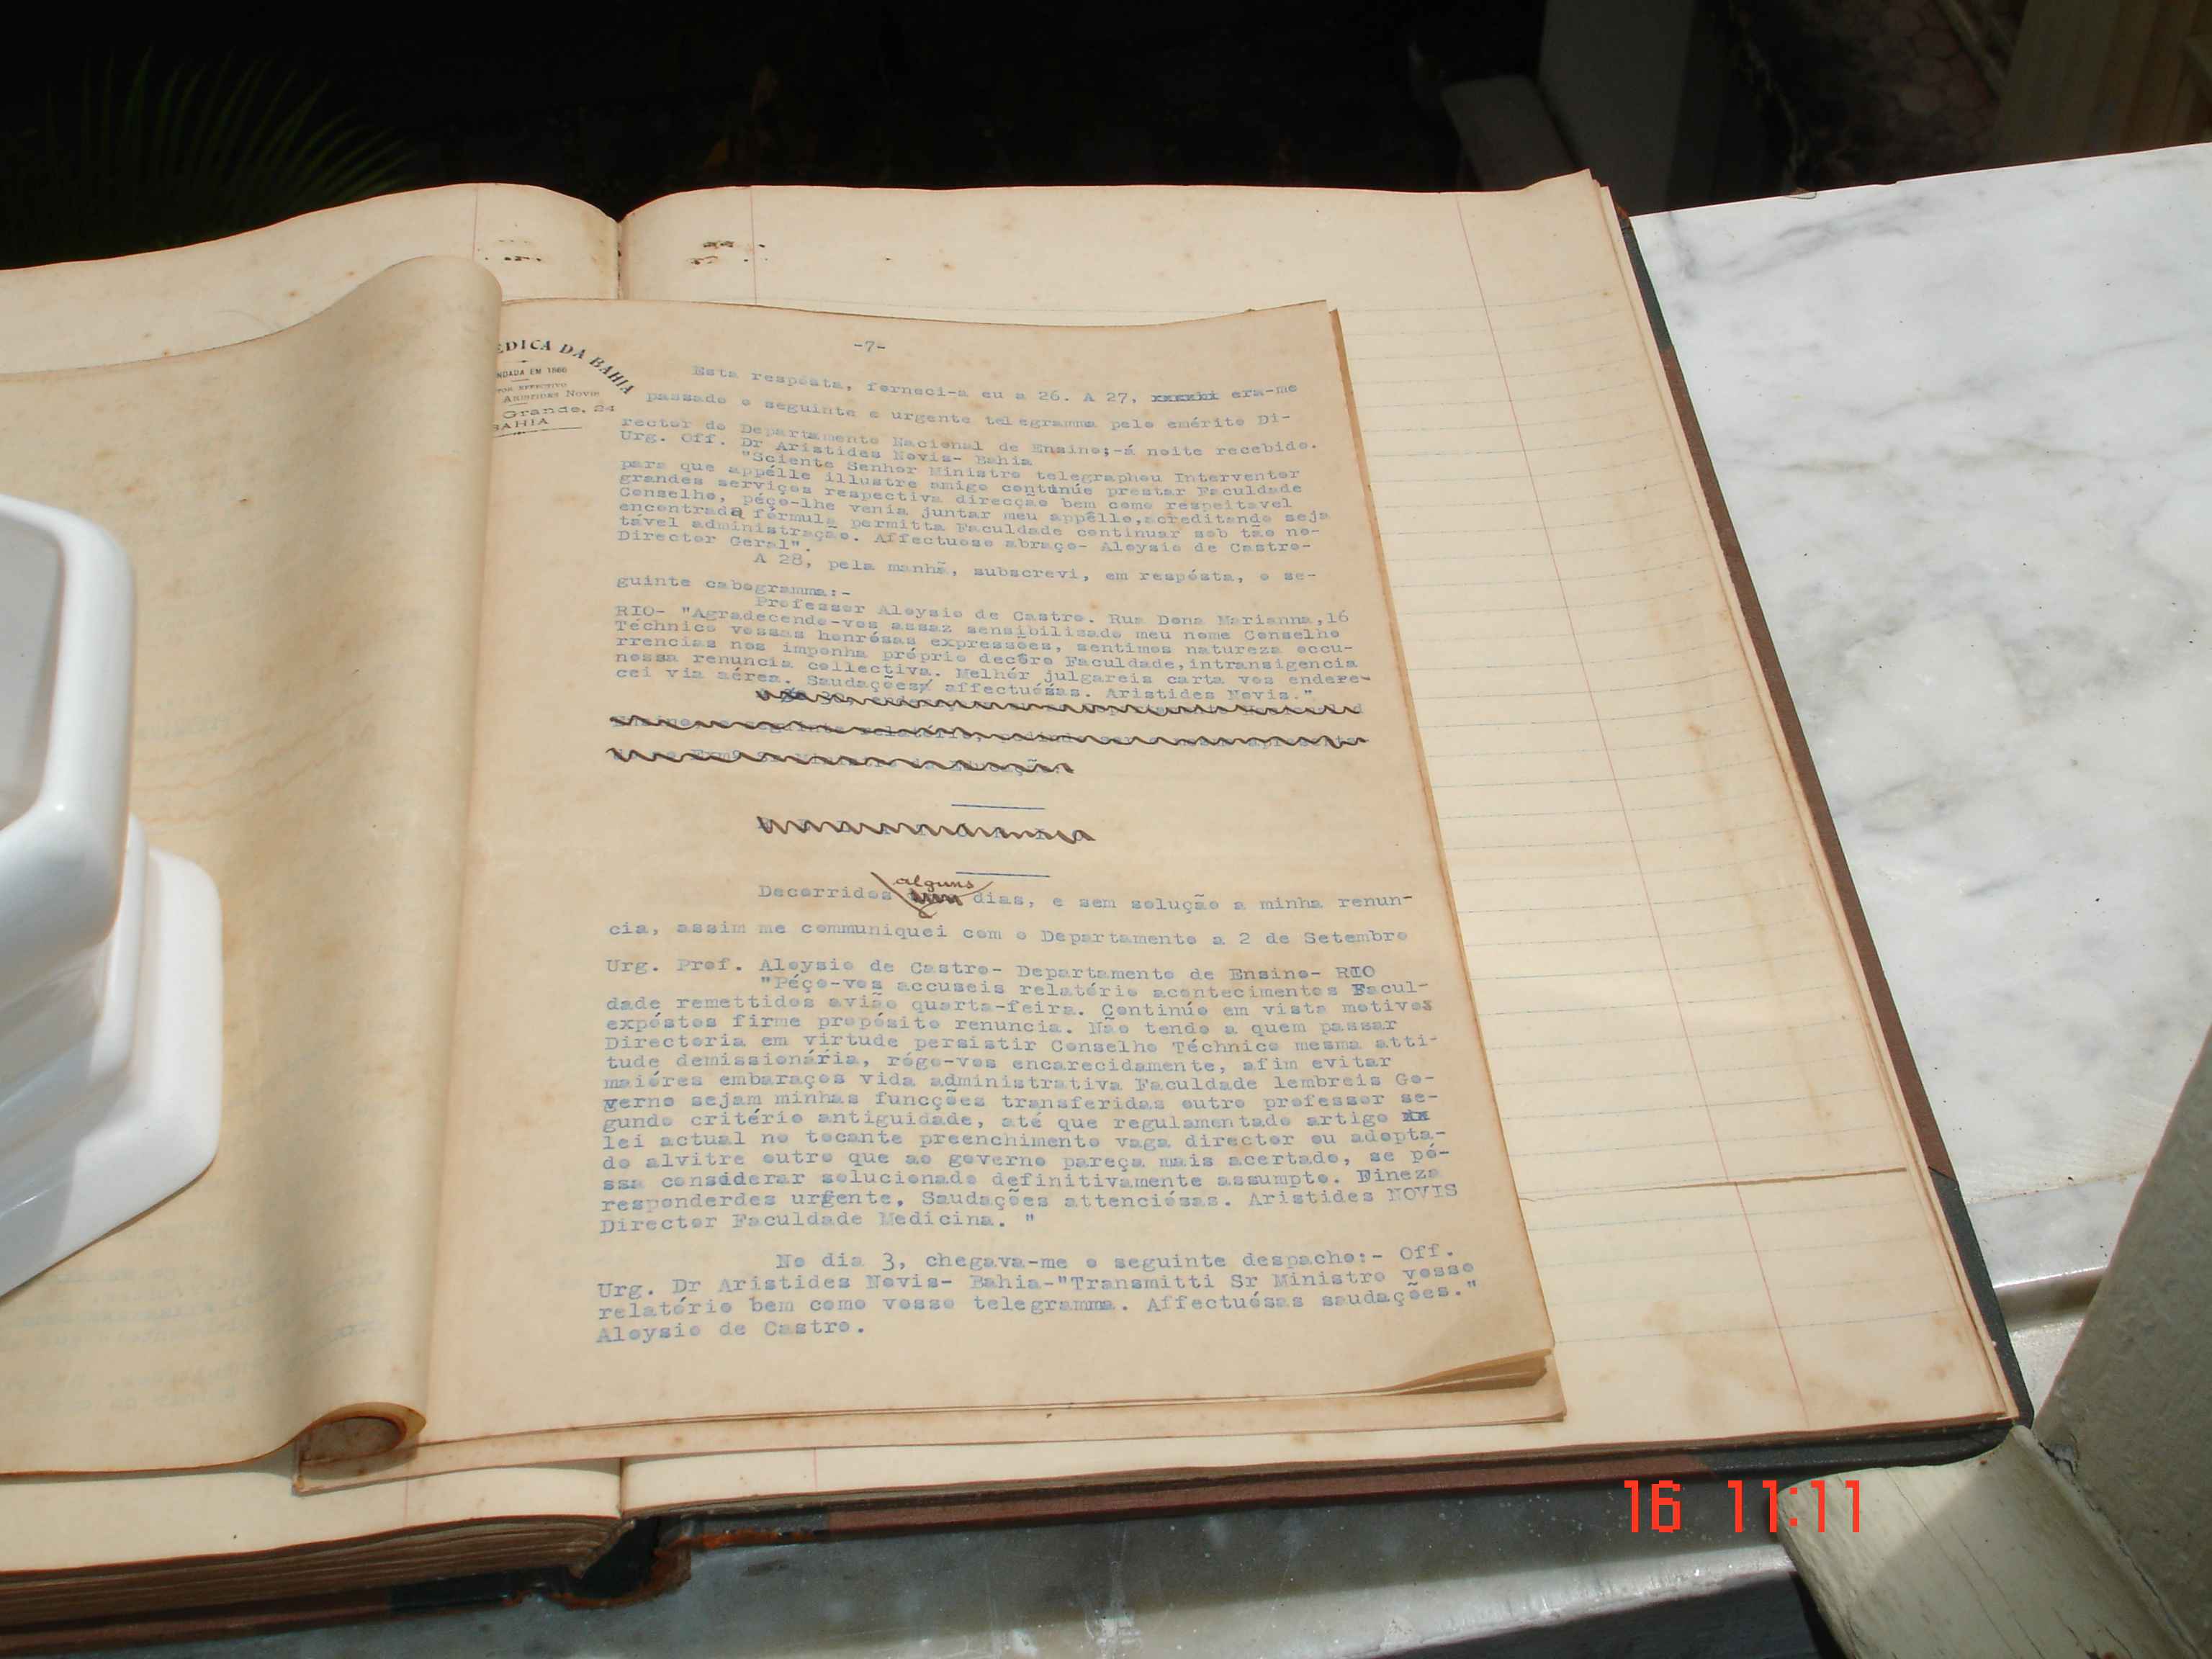 EDICA DA BAHIA
NDADA EM 1866
EFFECTIVO
Aristides Novis
Grande, 24
BAHIA
-7-
Esta respósta, forneci-a eu a 26. A 27, era-me
passado o seguinte e urgente telegramma pelo emérito Di-
rector do Departamento Nacional de Ensino;-á noite recebido.
Urg. Off. Dr Aristides Novis- Bahia
"Sciente Senhor Ministro telegraphou Interventor
para que appélle illustre amigo continúe prestar Faculdade
grandes serviços respectiva direcção bem como respeitavel
Conselho, péço-lhe venia juntar meu appêllo,acreditando seja
encontrada fórmula permitta Faculdade continuar sob tão no-
tável administração. Affectuoso abraço- Aloysio de Castro-
Director Geral".
A 28, pela manhã, subscrevi, em respósta, o se-
guinte cabogramma:-
Professor Aloysio de Castro. Rua Dona Marianna,16
RIO- "Agradecendo-vos assaz sensibilisado meu nome Conselho
Téchnico vossas honrósas expressões, sentimos natureza occu-
rrencias nos imponha próprio decôro Faculdade,intransigencia
nossa renuncia collectiva. Melhór julgareis carta vos endere-
cei via aérea. Saudações affectuósas. Aristides Novis."
alguns
Decorridos dias, e sem solução a minha renun-
cia, assim me communiquei com o Departamento a 2 de Setembro
Urg. Prof. Aloysio de Castro- Departamento de Ensino- RIO
"Péço-vos accuseis relatório acontecimentos Facul-
dade remettidos avião quarta-feira. Continúo em vista motivos
expóstos firme propósito renuncia. Não tendo a quem passar
Directoria em virtude persistir Conselho Téchnico mesma atti-
tude demissionária, rógo-vos encarecidamente, afim evitar
maióres embaraços vida administrativa Faculdade lembreis Go-
verno sejam minhas funcções transferidas outro professor se-
gundo critério antiguidade, até que regulamentado artigo
lei actual no tocante preenchimento vaga director ou adopta-
do alvitre outro que ao governo pareça mais acertado, se pó-
ssa considerar solucionado definitivamente assumpto. Fineza
responderdes urgente, Saudações attenciósas. Aristides NOVIS
Director Faculdade Medicina. "
No dia 3, chegava-me o seguinte despacho:- Off.
Urg. Dr Aristides Novis- Bahia-"Transmitti Sr Ministro vosso
relatório bem como vosso telegramma. Affectuósas saudações."
Aloysio de Castro.
16 11:11